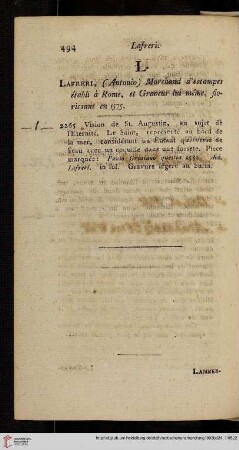 494 Lafreri.
L
LAFRERI, (Antonio) Marchand d'estampes
établi à Rome, et Graveur lui même, flo-
rissant en 1575.
2265 Vision de St. Augustin, au sujet de
l'Eternité. Le Saint, représenté au bord de
la mer, considérant un Enfant qui verse de
l'eau avec un coquille dans une fossete. Piece
marquée: Paulo Gratiano quesita 1582. Ant.
Lafreri. in fol. Gravure légere au burin.
LAMBES-